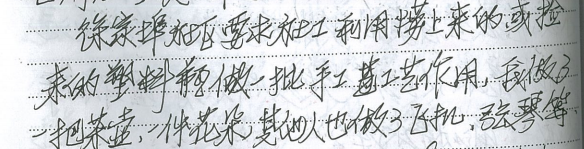 徐家埠社区要求社工利用捞上来的或捡
来的塑料瓶做一批手工艺工艺作用,我做了
一把茶壶,一件花朵,其他人也做了飞机,弦琴等